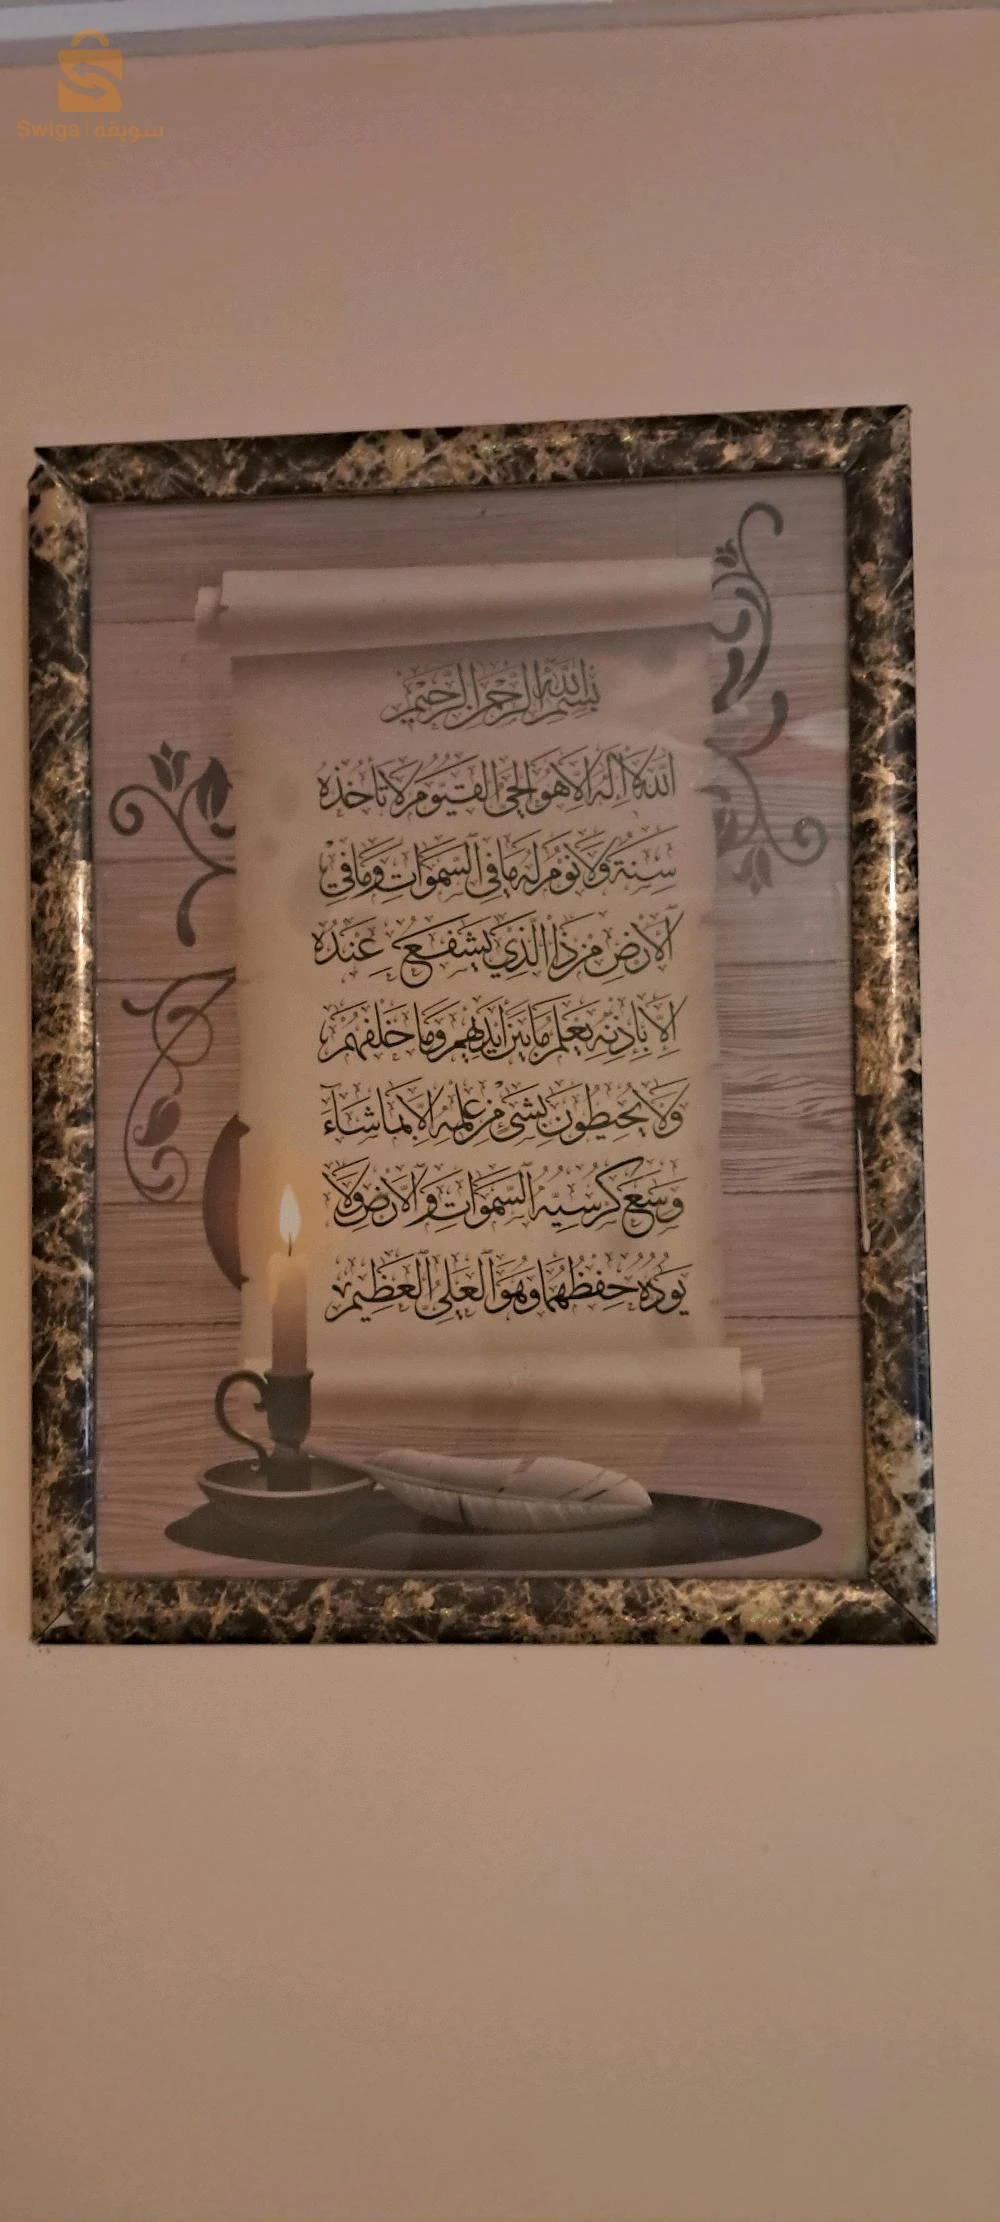 Swiga | سويقة
بسم الله الرحمن الرحيم
الله لا اله الا هو الحي القيوم لا تأخذه
سنة ولا نوم له ما في السموات وما في
الارض من ذا الذي يشفع عنده
الا بإذنه يعلم ما بين أيديهم وما خلفهم
ولا يحيطون بشئ من علمه الا بما شاء
وسع كرسيه السموات و الارض ولا
يوده حفظهما وهو العلي العظيم